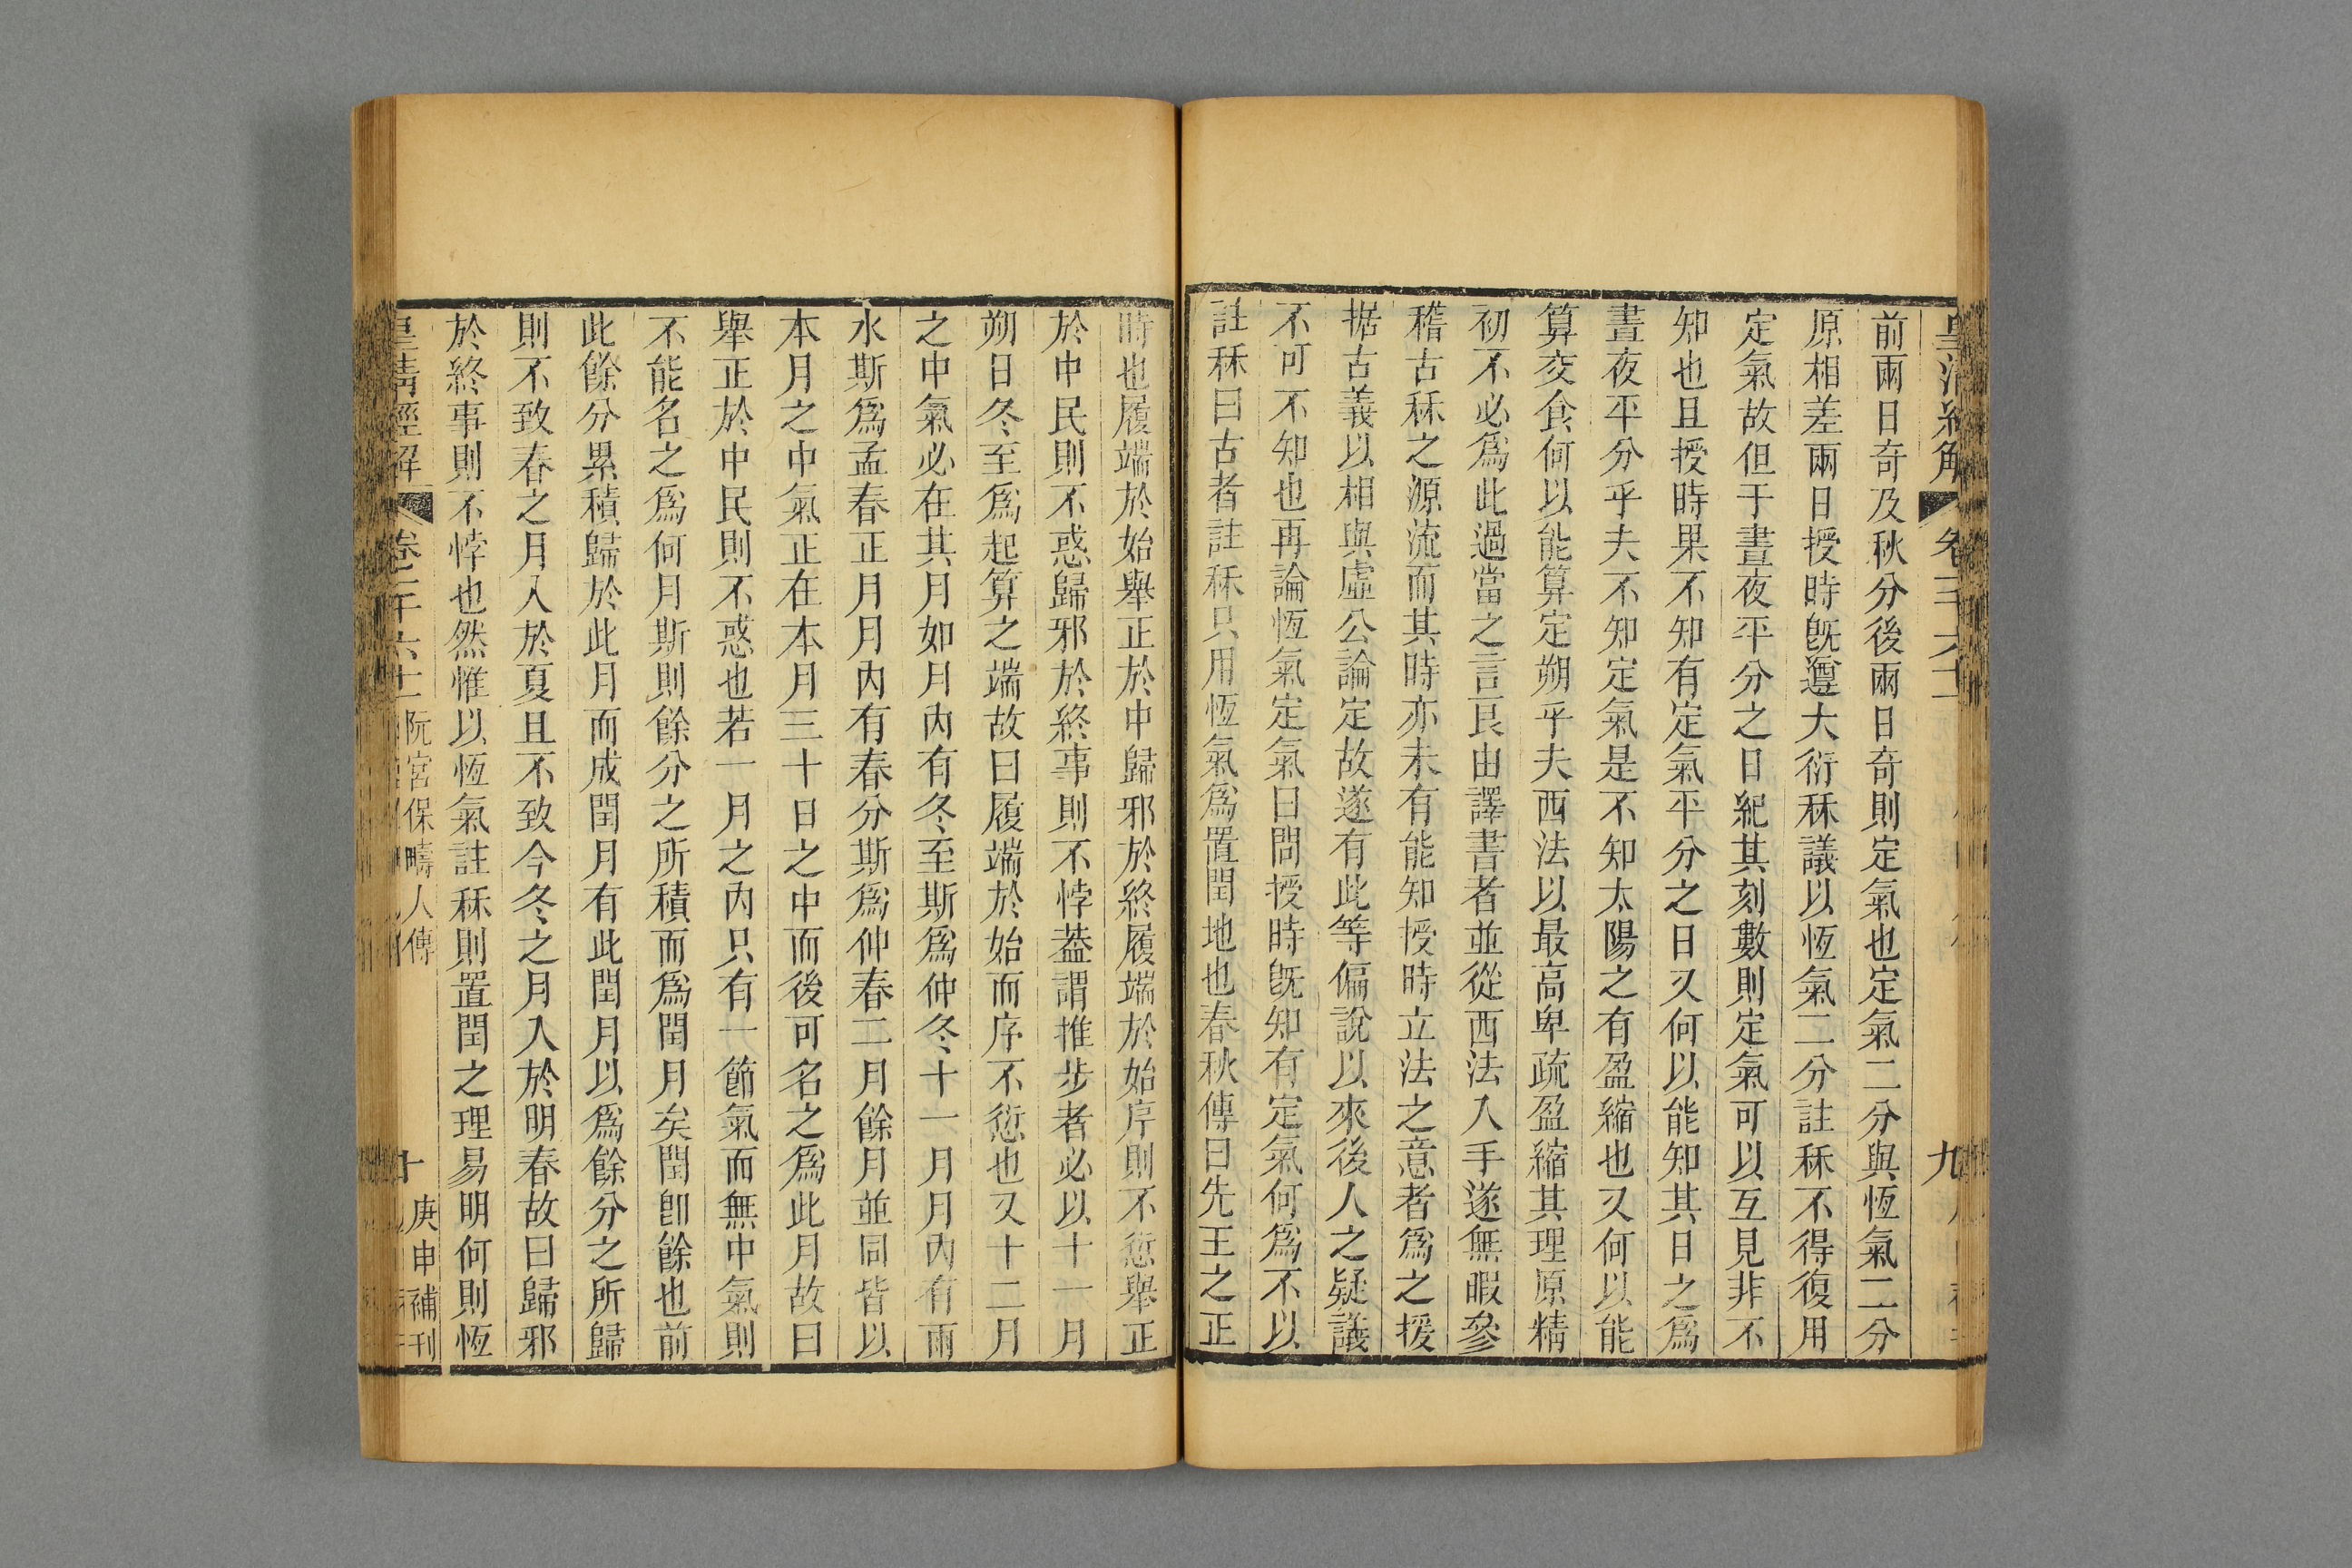 皇清經解 卷三六十 九
前兩日奇及秋分後兩日奇則定氣也定氣二分與恆氣二分
原相差兩日授時旣遵大衍秝議以恆氣二分註秝不得復用
定氣故但于晝夜平分之日紀其刻數則定氣可以互見非不
知也且授時果不知有定氣平分之日又何以能知其日之爲
晝夜平分乎夫不知定氣是不知太陽之有盈縮也又何以能
算交食何以能算定朔乎夫西法以最高卑疏盈縮其理原精
初不必爲此過當之言良由譯書者並從西法入手遂無暇參
稽古秝之源流而其時亦未有能知授時立法之意者爲之援
据古義以相與虛公論定故遂有此等偏說以來後人之疑議
不可不知也再論恆氣定氣曰問授時旣知有定氣何爲不以
註秝曰古者註秝只用恆氣爲置閏地也春秋傳曰先王之正
時也履端於始舉正於中歸邪於終履端於始序則不愆舉正
於中民則不惑歸邪於終事則不悖葢謂推步者必以十一月
朔日冬至爲起算之端故曰履端於始而序不愆也又十二月
之中氣必在其月如月內有冬至斯爲仲冬十一月月內有雨
水斯爲孟春正月月內有春分斯爲仲春二月餘月並同皆以
本月之中氣正在本月三十日之中而後可名之爲此月故曰
舉正於中民則不惑也若一月之內只有一節氣而無中氣則
不能名之爲何月斯則餘分之所積而爲閏月矣閏卽餘也前
此餘分累積歸於此月而成閏月有此閏月以爲餘分之所歸
則不致春之月入於夏且不致今冬之月入於明春故曰歸邪
於終事則不悖也然惟以恆氣註秝則置閏之理易明何則恆
皇清經解 卷二千六十 阮宮保疇人傳 十 庚申補刊